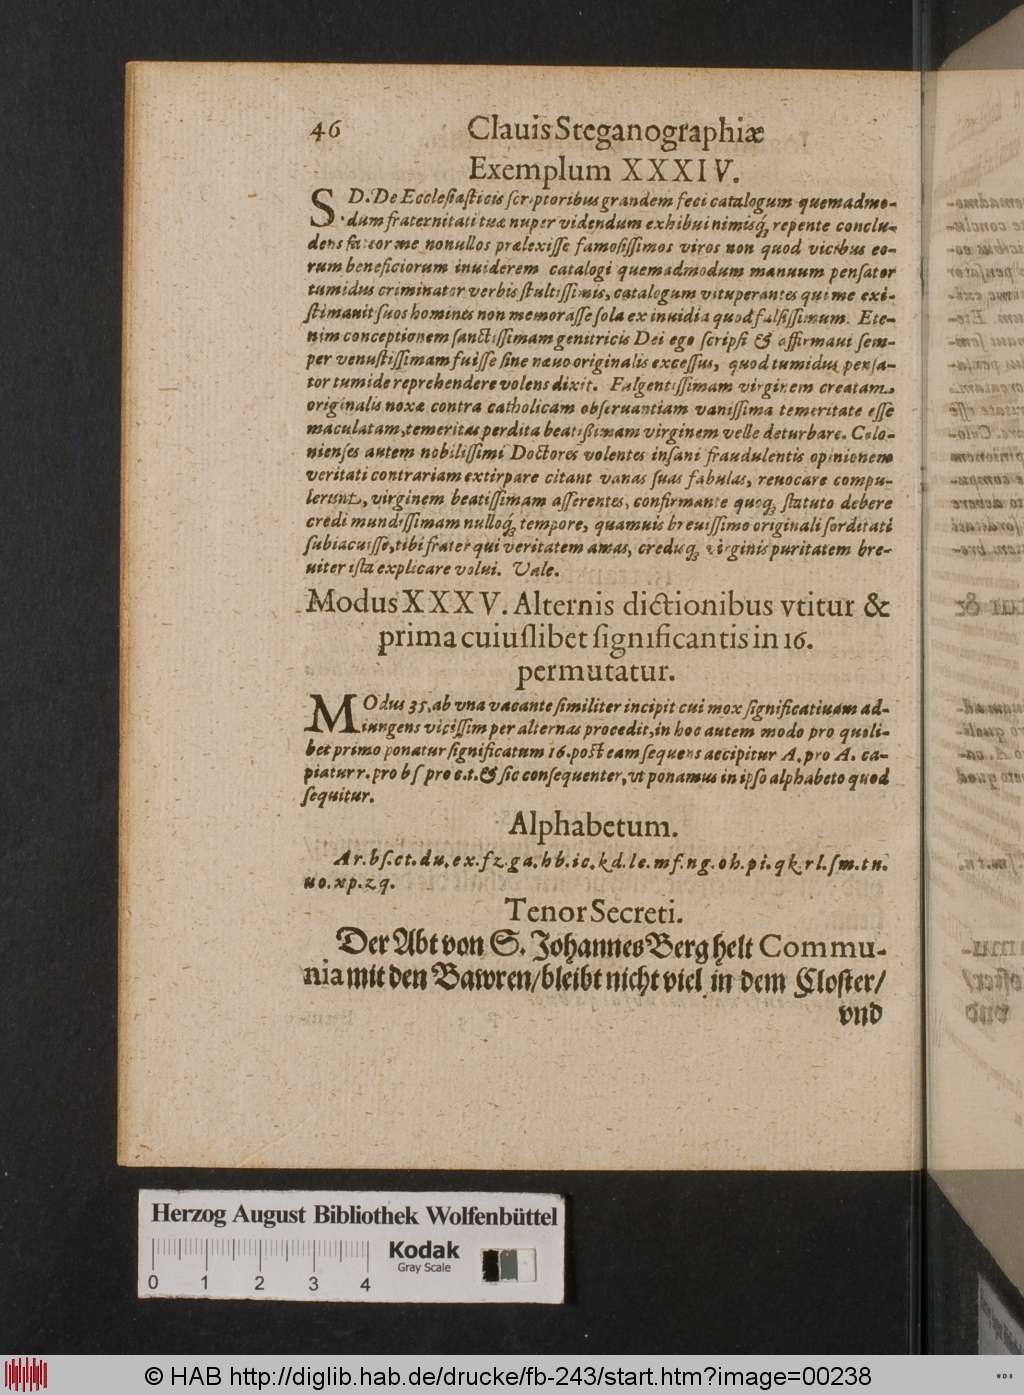 46 Clauis Steganographiæ
Exemplum XXXIV.
S D. De Ecclesiasticis scriptoribus grandem feci catalogum quemadmo-
dum fraternitati tuæ nuper videndum exhibui nimisq́ꝫ repente conclu-
dens fateor me nonullos prælexisse famosissimos viros non quod vicibus eo-
rum beneficiorum inuiderem catalogi quemadmodum manuum pensator
tumidus criminator verbis stultissimis, catalogum vituperantes qui me exi-
stimauit suos homines non memorasse sola ex inuidia quod falsissimum. Ete-
nim conceptionem sanctissimam genitricis Dei ego scripsi & affirmaui sem-
per venustissimam fuisse sine næuo originalis excessus, quod tumidus pensa-
tor tumide reprehendere volens dixit. Fulgentissimam virginem creatam
originalis noxæ contra catholicam obseruantiam vanissima temeritate esse
maculatam, temeritas perdita beatissimam virginem velle deturbare. Colo-
nienses autem nobilissimi Doctores volentes insani fraudulentis opinionem
veritati contrariam extirpare citant vanas suas fabulas, reuocare compu-
lerunt, virginem beatissimam asserentes, confirmante quoqꝫ statuto debere
credi mundissimam nulloq́ꝫ tempore, quamuis breuissimo originali sorditati
subiacuisse, tibi frater qui veritatem amas, credisqꝫ virginis puritatem bre-
uiter ista explicare volui. Vale.
Modus XXXV. Alternis dictionibus vtitur &
prima cuiuslibet significantis in 16.
permutatur.
MOdus 35. ab vna vacante similiter incipit cui mox significatiuam ad-
iungens vicissim per alternas procedit, in hoc autem modo pro quoli-
bet primo ponatur significatum 16. post eam sequens accipitur A. pro A. ca-
piatur r. pro b s pro c. t. & sic consequenter, vt ponamus in ipso alphabeto quod
sequitur.
Alphabetum.
Ar. bs. ct. du. ex. fz. ga. hb. ic. kd. le. mf. ng. oh. pi. qk. rl. sm. tn.
uo. xp. zq.
Tenor Secreti.
Der Abt von S. Johannes Berg helt Commu-
nia mit den Bawren/ bleibt nicht viel in dem Closter/
vnd
Herzog August Bibliothek Wolfenbüttel
0 1 2 3 4
Kodak
Gray Scale
© HAB http://diglib.hab.de/drucke/fb-243/start.htm?image=00238